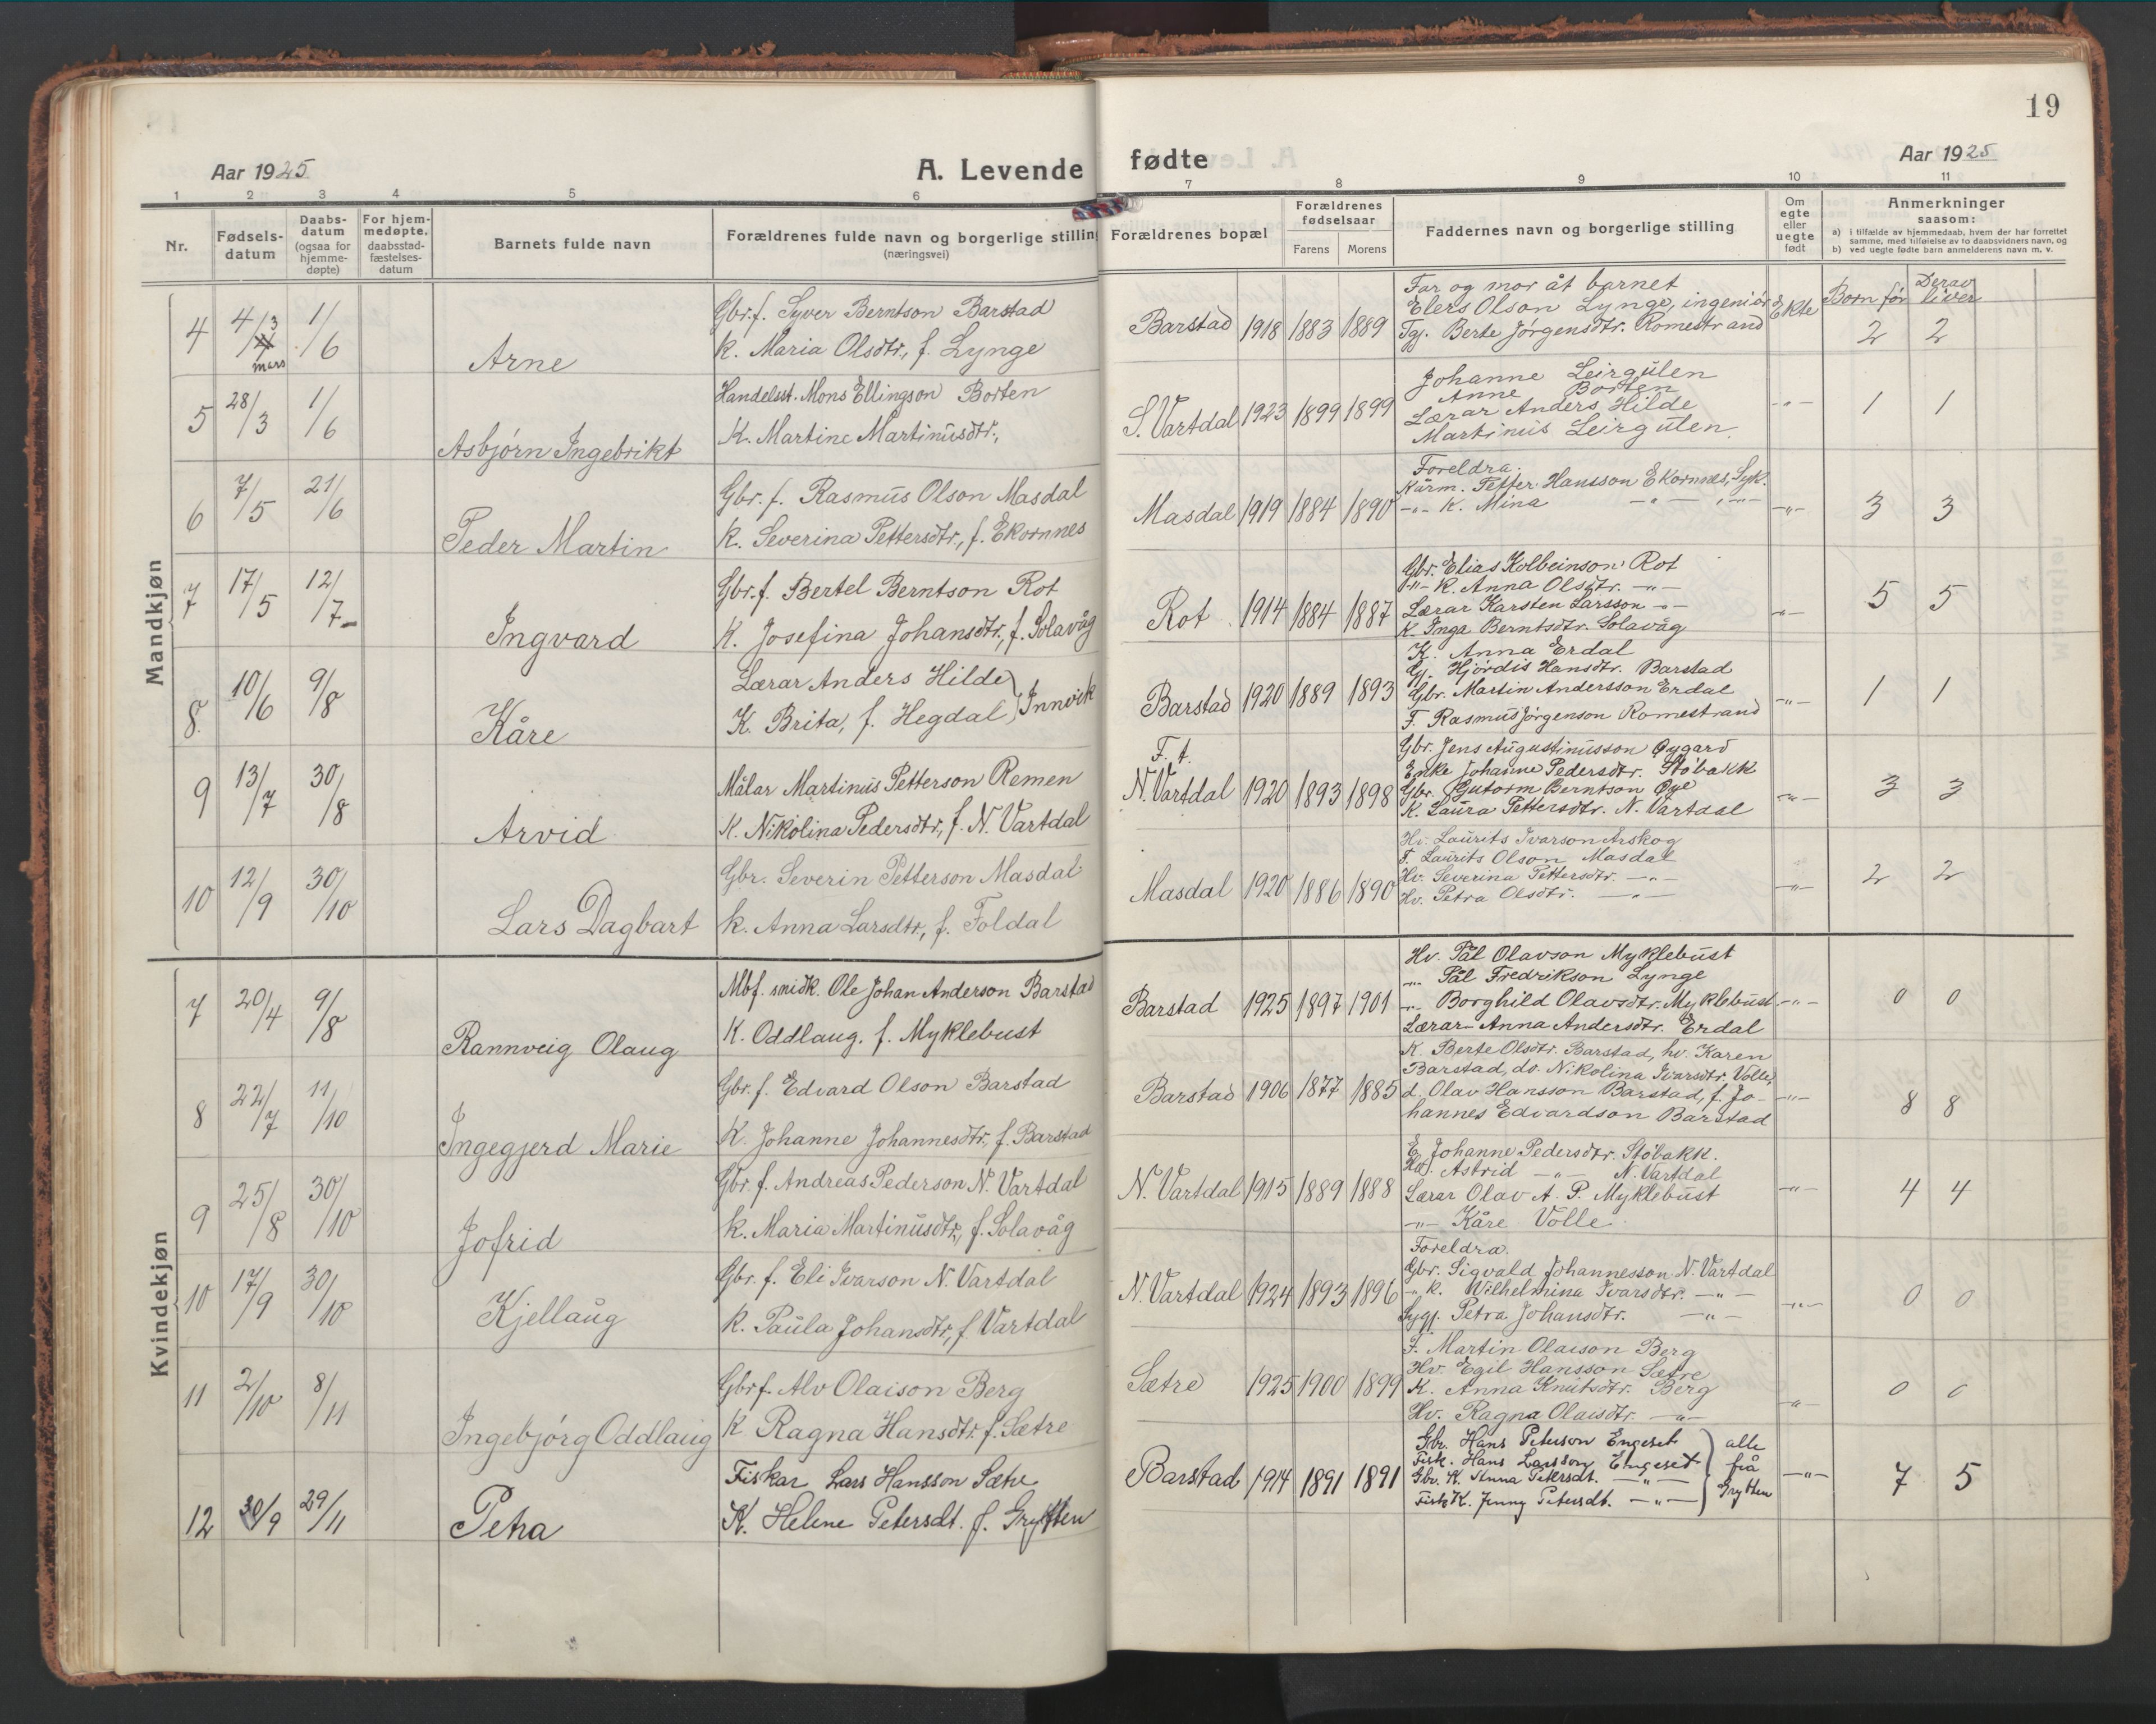 19
Aar 1925
A. Levende fødte
Aar 1925
1 2 3 4 5 6 7 8 9 10 11
Nr.
Fødsels-
datum
Daabs-
datum
(ogsaa for
hjemme-
døpte)
For hjem-
medøpte.
daabsstad-
fæstelses-
datum
Barnets fulde navn
Forældrenes fulde navn og borgerlige stilling
(næringsvei)
Forældrenes bopæl
Forældrenes
fødselsaar
Farens Morens
Faddernes navn og borgerlige stilling
Om
egte
eller
uegte
født
Anmerkninger
saasom:
a) i tilfælde av hjemmedaab, hvem der har forrettet
samme, med tilføielse av to daabsvidners navn, og
b) ved uegte fødte barn anmelderens navn m. v.
Born før
Derav
liver
Mandkjøn
4 4/3 mars 1/6 Arne
Gbr.f. Syver Berntson Barstad
K. Maria Olsdtr., f. Lynge
Barstad 1918 1883 1889
Far og mor åt barnet
Elers Olson Lynge, ingeniör
Tgj. Berte Jørgensdtr. Romestrand
Ekte 2 2
5 28/3 1/6 Asbjørn Ingebrikt
Handelsst. Mons Ellingson Borten
K. Martine Martinusdtr.,
S. Vartdal 1923 1899 1899
Johanne Leirgulen
Anne Borten
Lærar Anders Hilde
Martinus Leirgulen.
-"- 1 1
6 7/5 21/6 Peder Martin
Gbr. f. Rasmus Olson Masdal
K. Severina Pettersdtr., f. Ekornnes
Masdal 1919 1884 1890
Foreldra.
Kårm. Petter Hansson Ekornnes, Syk.
-"- K. Mina -"- -"-
-"- 3 3
7 17/5 12/7 Ingvard
Gbr.f. Bertel Berntson Rot
K. Josefina Johansdtr., f. Solavåg
Rot 1914 1884 1887
Gbr. Elias Kolbeinson Rot
-"- K. Anna Olsdtr. -"-
Lærar Karsten Larsson -"-
K. Inga Berntsdtr. Solavåg
-"- 5 5
8. 10/6 9/8 Kåre
Lærar Anders Hilde
K. Brita, f. Hegdal } Innvik
Barstad 1920 1889 1893
K. Anna Erdal
Gj. Hjørdis Hansdtr. Barstad
Gbr. Martin Andersson Erdal
F. Rasmus Jørgenson Romestrand
-"- 1 1
9 13/7 30/8 Arvid
Målar Martinus Petterson Remen
K. Nikolina Pedersdtr., f. N. Vartdal
F. t.
N. Vartdal 1920 1893 1898
Gbr. Jens Augustinusson Øygard
Enke Johanne Pedersdtr. Støbakk
Gbr. Gutorm Berntson Øye
K. Laura Pettersdtr. N. Vartdal
-"- 3 3
10 12/9 30/10 Lars Dagbart
Gbr. Severin Petterson Masdal
K. Anna Larsdtr, f. Foldal
Masdal 1920 1886 1890
Hv. Laurits Ivarson Årskog
F. Laurits Olson Masdal
Hv. Severina Pettersdtr. -"-
Hv. Petra Olsdtr. -"-
-"- 2 2
Kvindekjøn
7 20/4 9/8 Rannveig Olaug
Mbf. smidk. Ole Johan Anderson Barstad
K. Oddlaug. f. Myklebust
Barstad 1925 1897 1901
Hv. Pål Olavson Myklebust
-"- Pål Fredrikson Lynge
-"- Borghild Olavsdtr. Myklebust
Lærar- Anna Andersdtr. Erdal
-"- 0 0
8 22/7 11/10 Ingegjerd Marie
Gbr. f. Edvard Olson Barstad
K. Johanne Johannesdtr, f. Barstad
Barstad 1906 1877 1885
K. Berte Olsdtr. Barstad, hv. Karen
Barstad, do. Nikolina Ivarsdtr. Volle,
d. Olav Hansson Barstad, f. Jo-
hannes Edvardson Barstad
-"- 8 8
9 25/8 30/10 Jofrid
Gbr. f. Andreas Pederson N. Vartdal
K. Maria Martinusdtr., f. Solavåg
N. Vartdal 1915 1889 1888
E. Johanne Pedersdtr. Støbakk.
Hv. Astrid -"- N. Vartdal
Lærar Olav A. P. Myklebust
-"- Kåre Volle
-"- 4 4
10 17/9 30/10 Kjellaug
Gbr. f. Eli Ivarson N. Vartdal
K. Paula Johansdtr, f. Vartdal
N. Vartdal 1924 1893 1896
Foreldra.
Gbr. Sigvald Johannesson N. Vartdal
-"- K. Wilhelmina Ivarsdtr. -"-
Sygj. Petra Johansdtr. -"-
-"- 0 0
11 2/10 8/11 Ingebjørg Oddlaug
Gbr f. Alv Olaison Berg
K Ragna Hansdtr. f. Sætre
Sætre 1925 1900 1899
F. Martin Olaison Berg
Hv. Egil Hansson Sætre
K. Anna Knutsdtr. Berg
Hv. Ragna Olaisdtr. -"-
-"- 0 0
12 30/9 29/11 Petra
Fiskar Lars Hansson Sætre
K. Helene Petersdt. f. Grytten
Barstad 1914 1891 1891
Gbr. Hans Peterson Engeset
Fisk. Hans Larsson Engeset
Gbr. K. Anna Petersdt. -"-
Fisk. K. Jenny Petersdt. -"-
} alle
frå
Grytten
-"- 7 5